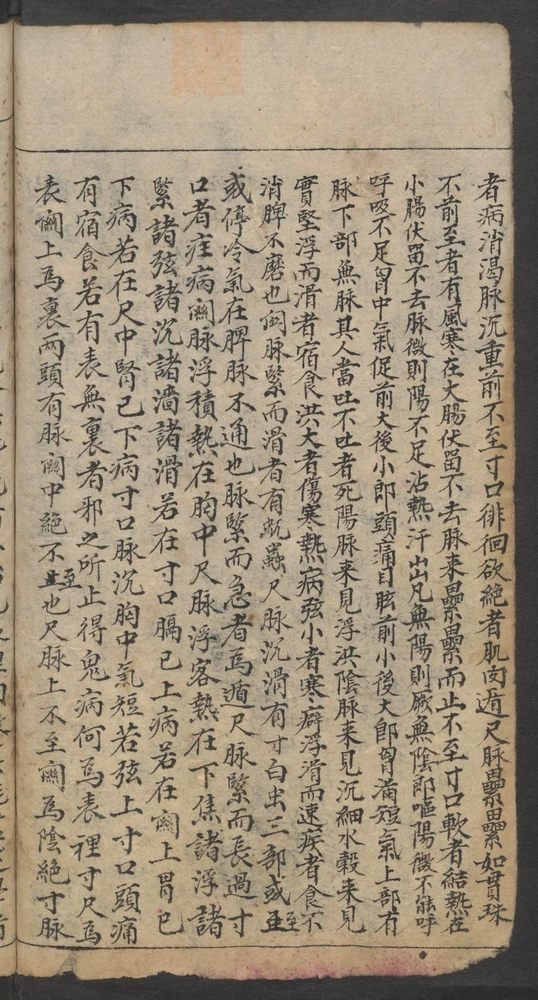 者病消渴脉沉重前不至寸口徘徊欲絶者肌肉遁尺脉纍纍如貫珠
不前至者有風寒在大腸伏留不去脉来纍纍而止不至寸口軟者結熱在
小腸伏留不去脉微則陽不足沾熱汗出凡無陽則厥無陰即嘔陽微不能呼
呼吸不足胷中氣促前大後小即頭痛目眩前小後大即胷滿短氣上部有
脉下部無脉其人當吐不吐者死陽脉来見浮洪陰脉来見沉細水穀来見
實堅浮而滑者宿食洪大者傷寒熱病弦小者寒癖浮滑而速疾者食不
消脾不磨也関脉緊而滑者有蚘蟲尺脉沉滑有寸白虫三部或至
或停冷氣在脾脉不通也脉緊而急者為遁尺脉緊而長過寸
口者疰病関脉浮積熱在胸中尺脉浮客熱在下焦諸浮諸
緊諸弦諸沉諸濇諸滑若在寸口膈已上病若在関上胃已
下病若在尺中腎已下病寸口脉沉胸中氣短若弦上寸口頭痛
有宿食若有表無裏者邪之所止得鬼病何為表裡寸尺為
表関上為裏两頭有脉関中絶不至也尺脉上不至関為陰絶寸脉